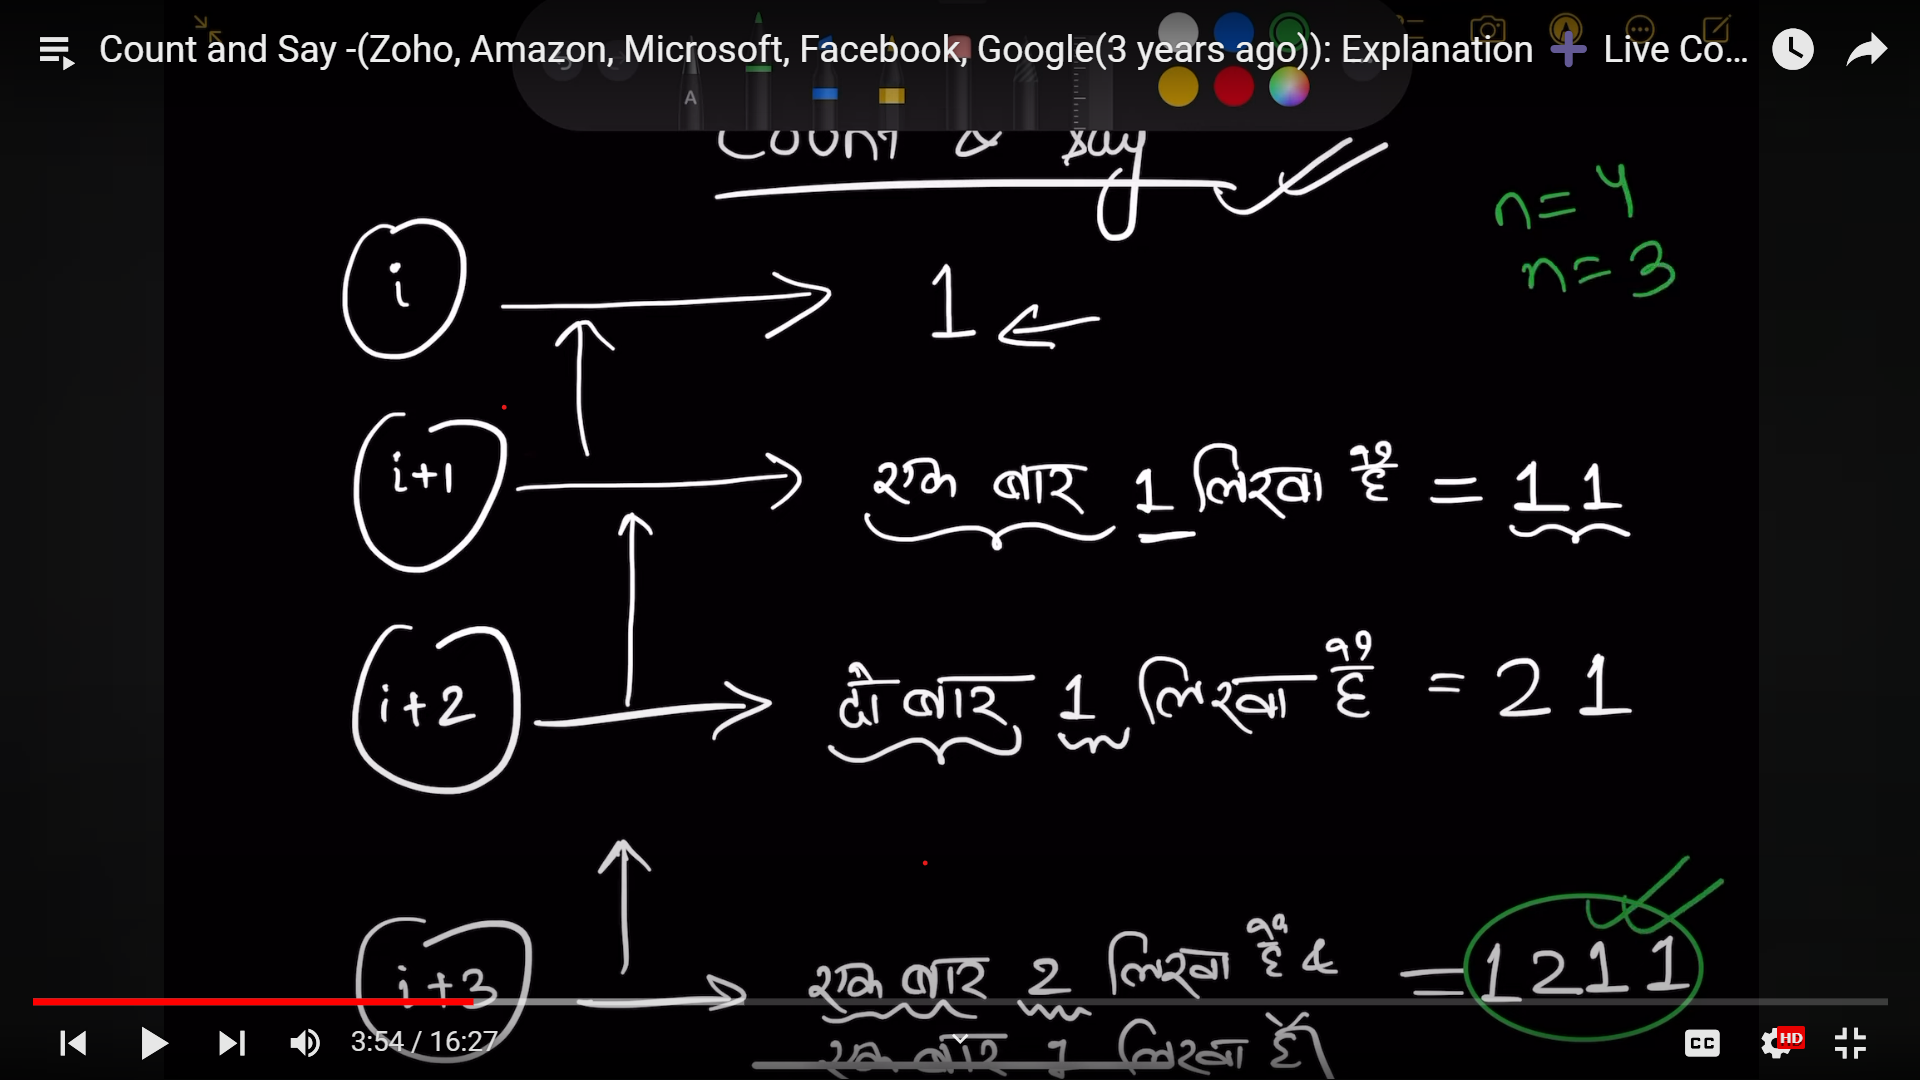 Count and Say -(Zoho, Amazon, Microsoft, Facebook, Google(3 years ago)): Explanation ➕ Live Co...
A
Count & Say
n = 4
n = 3
i → 1 ←
i+1 → एक बार 1 लिखा है = 11
i+2 → दो बार 1 लिखा है = 21
i+3 → एक बार 2 लिखा है & = 1211
एक बार 1 लिखा है
3:54 / 16:27
CC
HD